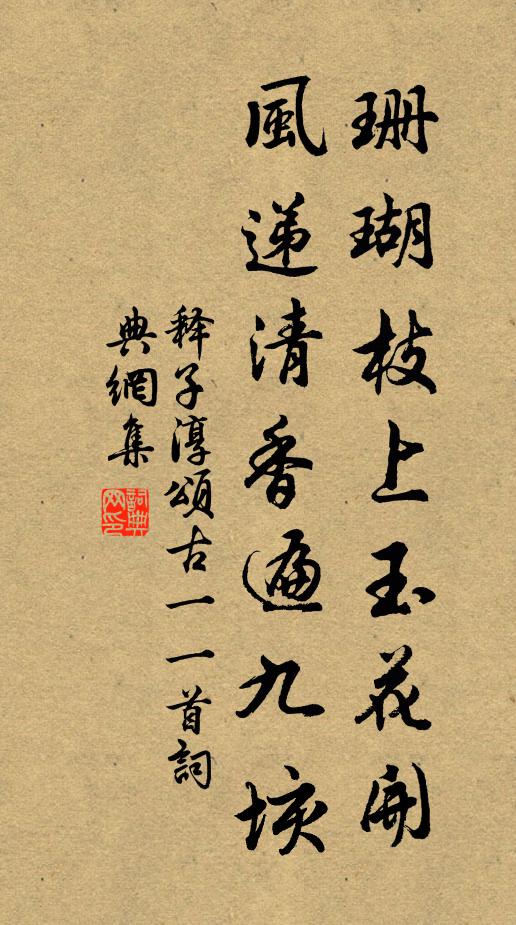 珊瑚枝上玉花開
風递清香遍九垓
释子淳頌古一一首詞
典網集
詞典
网印